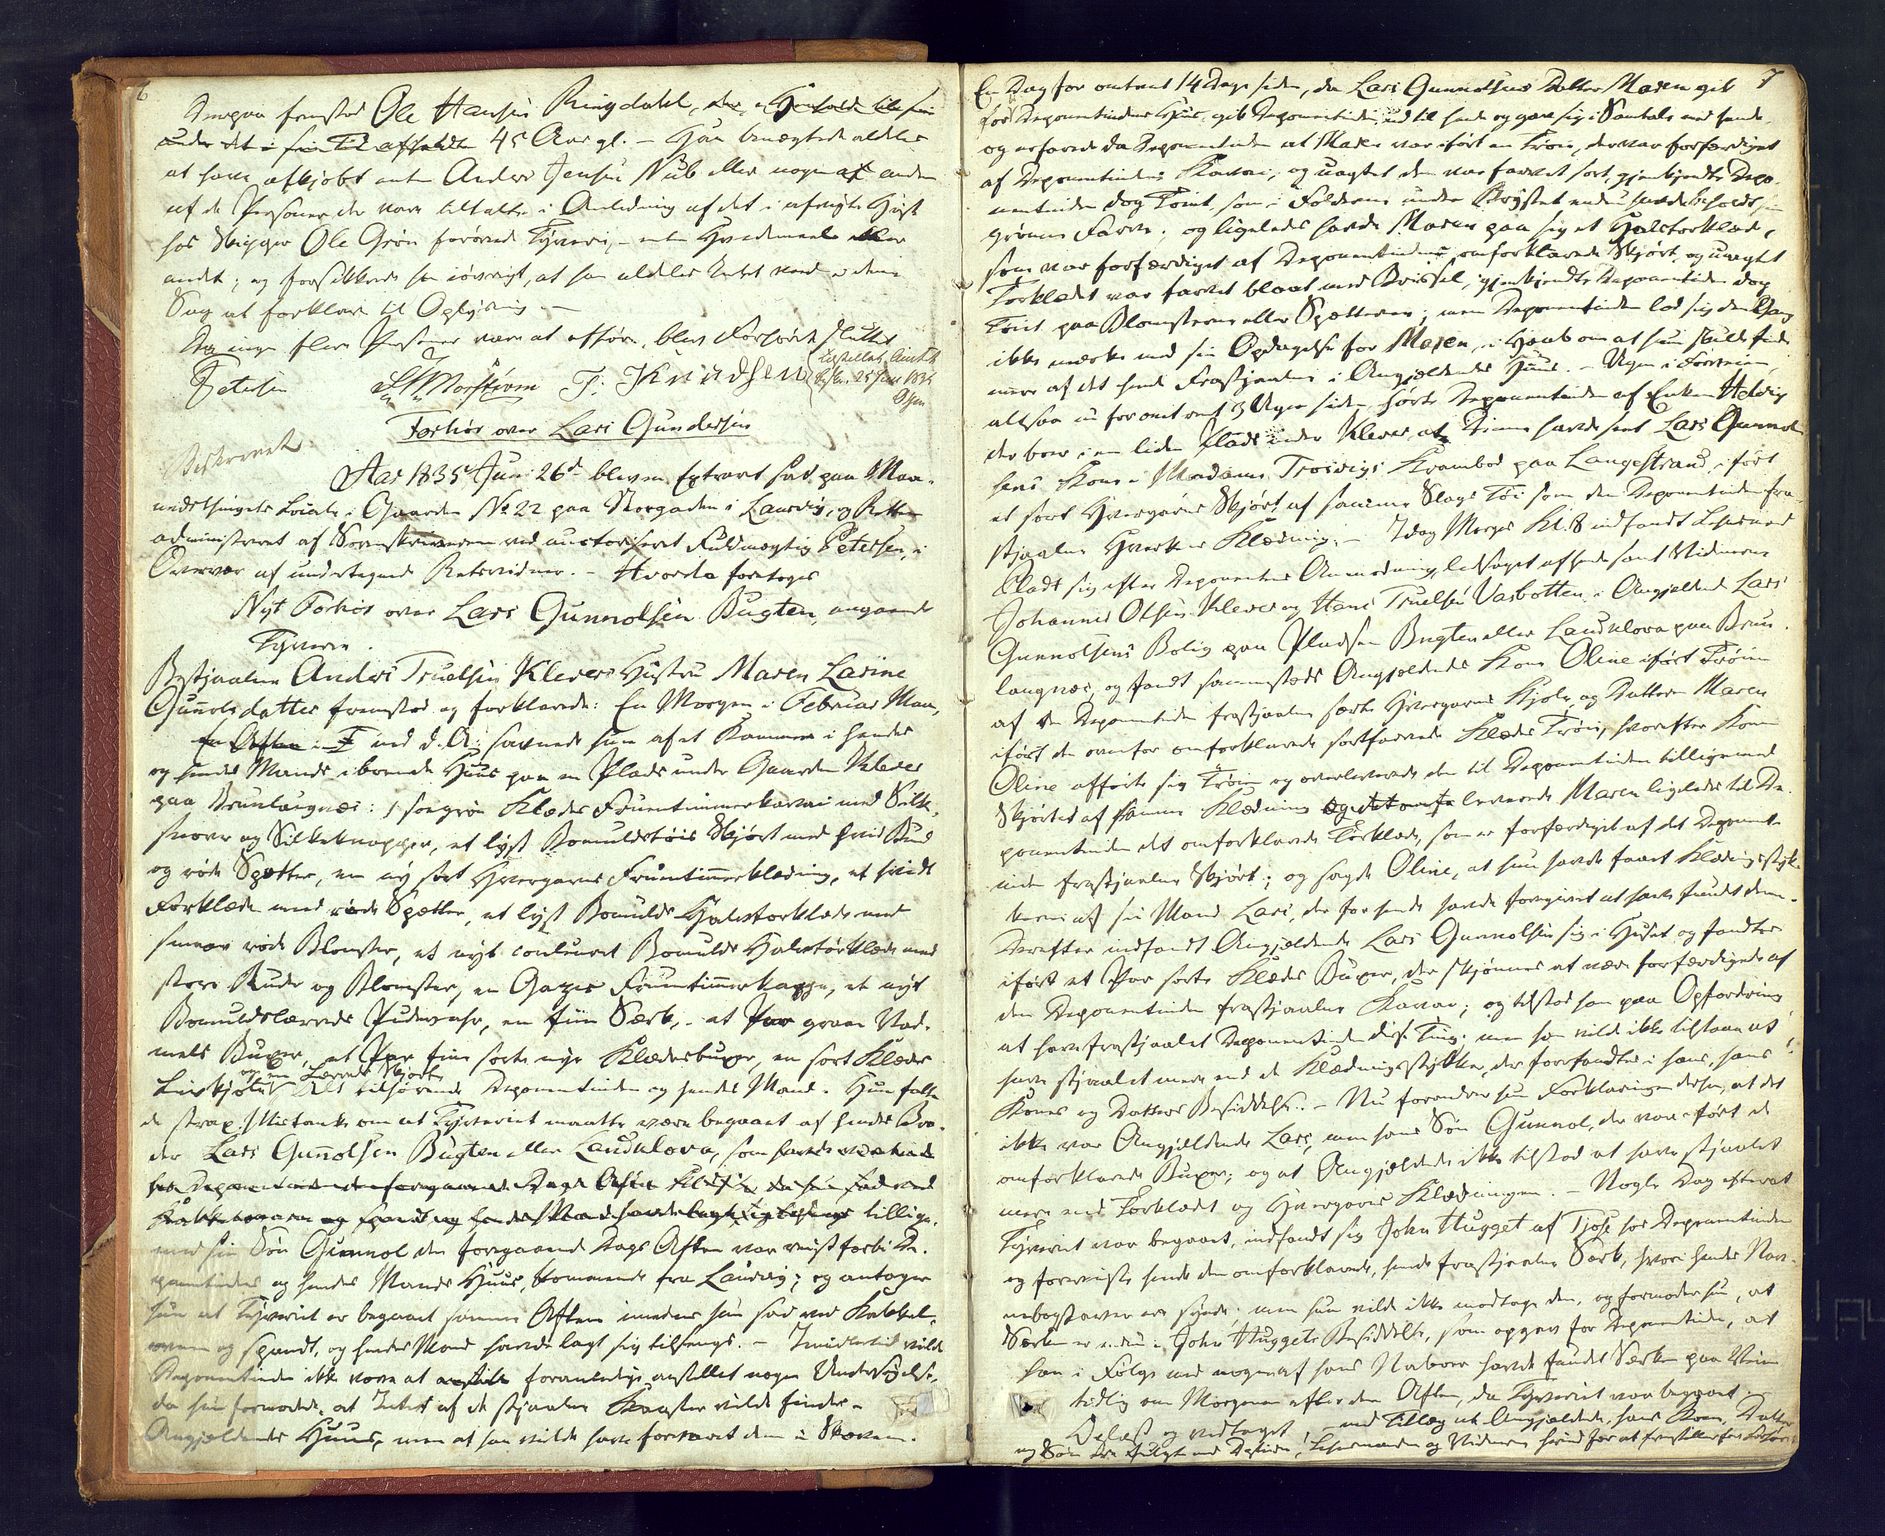 6
Derpaa fremstod Ole Hansen Ringdahl,
45 Aar gl. – Han benægtede aldeles
at have afkjøbt enten Anders Jensen Nub eller nogen af anden
af de Personer der vare tiltalte i Anledning af det i afvigte Høst
hos Skipper Ole Grøn forøvede Tyveri, – enten Hvedemeel eller
andet; og forsikkrede han iøvrigt, at han aldeles Intet veed i denne
Sag at forklare til Oplysning. –
Da ingen flere Personer vare at afhøre, blev Forhøret sluttet
Petersen Morstrøm T. Knudsen
Forhør over Lars Gundersen
Beskrevet
Aar 1835 Juni 26de blev en Extraret sat paa Maa-
nedsthingets Locale i Gaarden No 22 paa Norgaden i Laurvig, og Retten
administreret af Sorenskriveren ved auctoriseret Fuldmægtig Petersen, i
Overvær af undertegnede Retsvidner. – Hvorda foretoges
Nyt Forhør over Lars Gunnolsen Bugten, angaaende
Tyverie.
Bestjaalne Anders Truelsen Klevers Hustru Maren Larine
Gunnolsdatter fremstod og forklarede: En Morgen i Februar Maa-
ned d. A. savnede hun af et Kammer i hendes
og hendes Mands iboende Huus paa en Plads under Gaarden Klever
paa Brunlaugnæs: 1 søegrøn Klædes Fruentimmerkavai med Silke-
snore og Silkeknapper, et lyst Bomuldstøies Skjørt med hvid Bund
og røde Spætter, en ny sort Hvergarns Fruentimmerklædning, et hvidt
Forklæde med røde Spætter, et lyst Bomulds Halstørklæde med
smaae røde Blomster, et nyt couleuret Bomulds Halstørklæde med
store Ruder og Blomster, en Gazes Fruentimmerkappe, et nyt
Bomuldslærreds Pudevahr, en fiin Særk, – et Par graae Vad-
mels Buxer, et Par fine sorte nye Klædesbuxer, en sort Klædes
og en Lærreds Skjorte
Livkjole, Alt tilhørende Deponentinden og hendes Mand. Hun fatte-
de strax Mistanke om at Tyveriet maatte være begaaet af hendes Bro-
der Lars Gunnolsen Bugten eller Laudulova, som
tillige-
med sin Søn Gunnol den foregaaende Dags Aften var reist forbi De-
ponentindens og hendes Mands Huus, kommende fra Laurvig; og antager
hun at Tyveriet er begaaet samme Aften imedens hun sad ved Kakkel-
ovnen og spandt, og hendes Mand havde lagt sig tilsengs. – Imidlertid vilde
Deponentinden ikke vove at foranledige anstillet nogen Undersøgelse,
da hun formodede, at Intet af de stjaalne Koster vilde findes i
Angjældendes Huus, men at han vilde have forvaret dem i Skoven.
7
En Dag for omtrent 14 Dage siden, da Lars Gunnolsens Datter Maren gik
forbi Deponentindens Huus, gik Deponentinden ud til hende og gav sig i Samtale med hende
og erfarede da Deponentinden at Maren var iført en Trøie, der var forfærdiget
af Deponentindens Kavai, og uagtet den var farvet sort, gjenkjendte Depo-
nentinden dog Tøiet, som i Folderne under Brystet endnu havde beholdt sin
grønne Farve; og ligeledes havde Maren paa sig et Halstørklæde,
som var forfærdiget af Deponentindens omforklarede Skjørt, og uagtet
Tørklædet var farvet blaat med Brissel, gjenkjendte Deponentinden dog
Tøiet paa Blomsterne eller Spætterne; men Deponentinden lod sig den Gang
ikke mærke med sin Opdagelse for Maren, i Haab om at hun skulde finde
mere af det hende Frastjaalne i Angjældendes Huus. – Ugen i Forveien,
altsaa nu for omtrent 3 Uger siden, hørte Deponentinden af Enken Helvig
der boer i en liden Plads under Klever, at Denne havde seet Lars Gunnol-
sens Kone i Madame Troivigs Krambod paa Langestrand, iført
et sort Hvergarns Skjørt af samme Slags Tøi som den Deponentinden fra-
stjaalne Hvergarns Klædning. – Idag Morges Kl. 8 indfandt Lehnsmand
Cladt sig efter Deponentens Anmodning, ledsaget af hende samt Vidnerne
Johannes Olsen Klever og Hans Truelsen Vasbotten i Angjældende Lars
Gunnolsens Bolig paa Pladsen Bugten eller Laudulova paa Brun-
laugnæs, og fandt sammesteds Angjældendes Kone Oline iført Trøien
af den Deponentinden frastjaalne sorte Hvergarns Kjole, og Datteren Maren
iført den ovenfor omforklarede sortfarvede Klædes Trøie, hvorefter Konen
Oline afførte sig Trøien og overleverede den til Deponentinden tilligemed
Skjørtet af samme Klædning leverede Maren ligeledes til De-
ponentinden det omforklarede Tørklæde, som er forfærdiget af det Deponent-
inden frastjaalne Skjørt; og sagde Oline, at hun havde faaet Klædningsstyk-
kerne af sin Mand Lars, der for hende havde foregivet at have fundet dem.
Derefter indfandt Angjældende Lars Gunnolsen sig i Huset og fandtes
iført et Par sorte Klædes Buxer, der skjønnes at være forfærdigede af
den Deponentinden frastjaalne Kavai; og tilstod han paa Opfordring
at have frastjaalet Deponentinden disse Ting; men han vilde ikke tilstaae at
have stjaalet mere end de Klædningsstykker, der forefandtes i hans, hans
Kones og Datters Besiddelse. – Nu forandrer hun Forklaringen derhen, at det
ikke var Angjældende Lars, men hans Søn Gunnol, der var iført de
omforklarede Buxer; og at Angjældende ikke tilstod at have stjaalet
mere end Tørklædet og Hvergarns Klædningen. – Nogle Dage efterat
Tyveriet var begaaet, indfandt sig John Hugget af Tjose hos Deponentinden
og foreviste hende den omforklarede, hende frastjaalne Særk, hvori hendes Nav-
nebogstaver ere syede; men hun vilde ikke modtage den, og formoder hun, at
Særken er endnu i John Huggets Besiddelse, som opgav for Deponentinden, at
han i Følge med nogen af hans Naboer havde fundet Særken paa Veien
tidlig om Morgenen efter den Aften, da Tyveriet var begaaet. –
Oplæst og vedtaget med Tillæg at Angjældende, hans Kone, Datter
og Søn Lehnsmanden og Vidnerne